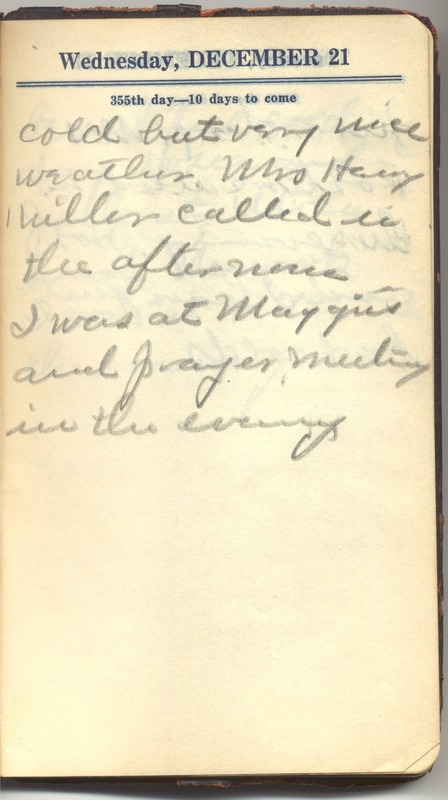 Wednesday, DECEMBER 21
355th day—10 days to come
cold but very nice
weather Mrs Henry
Miller called in
the afternoon
I was at Maggies
and prayer meeting
in the evening